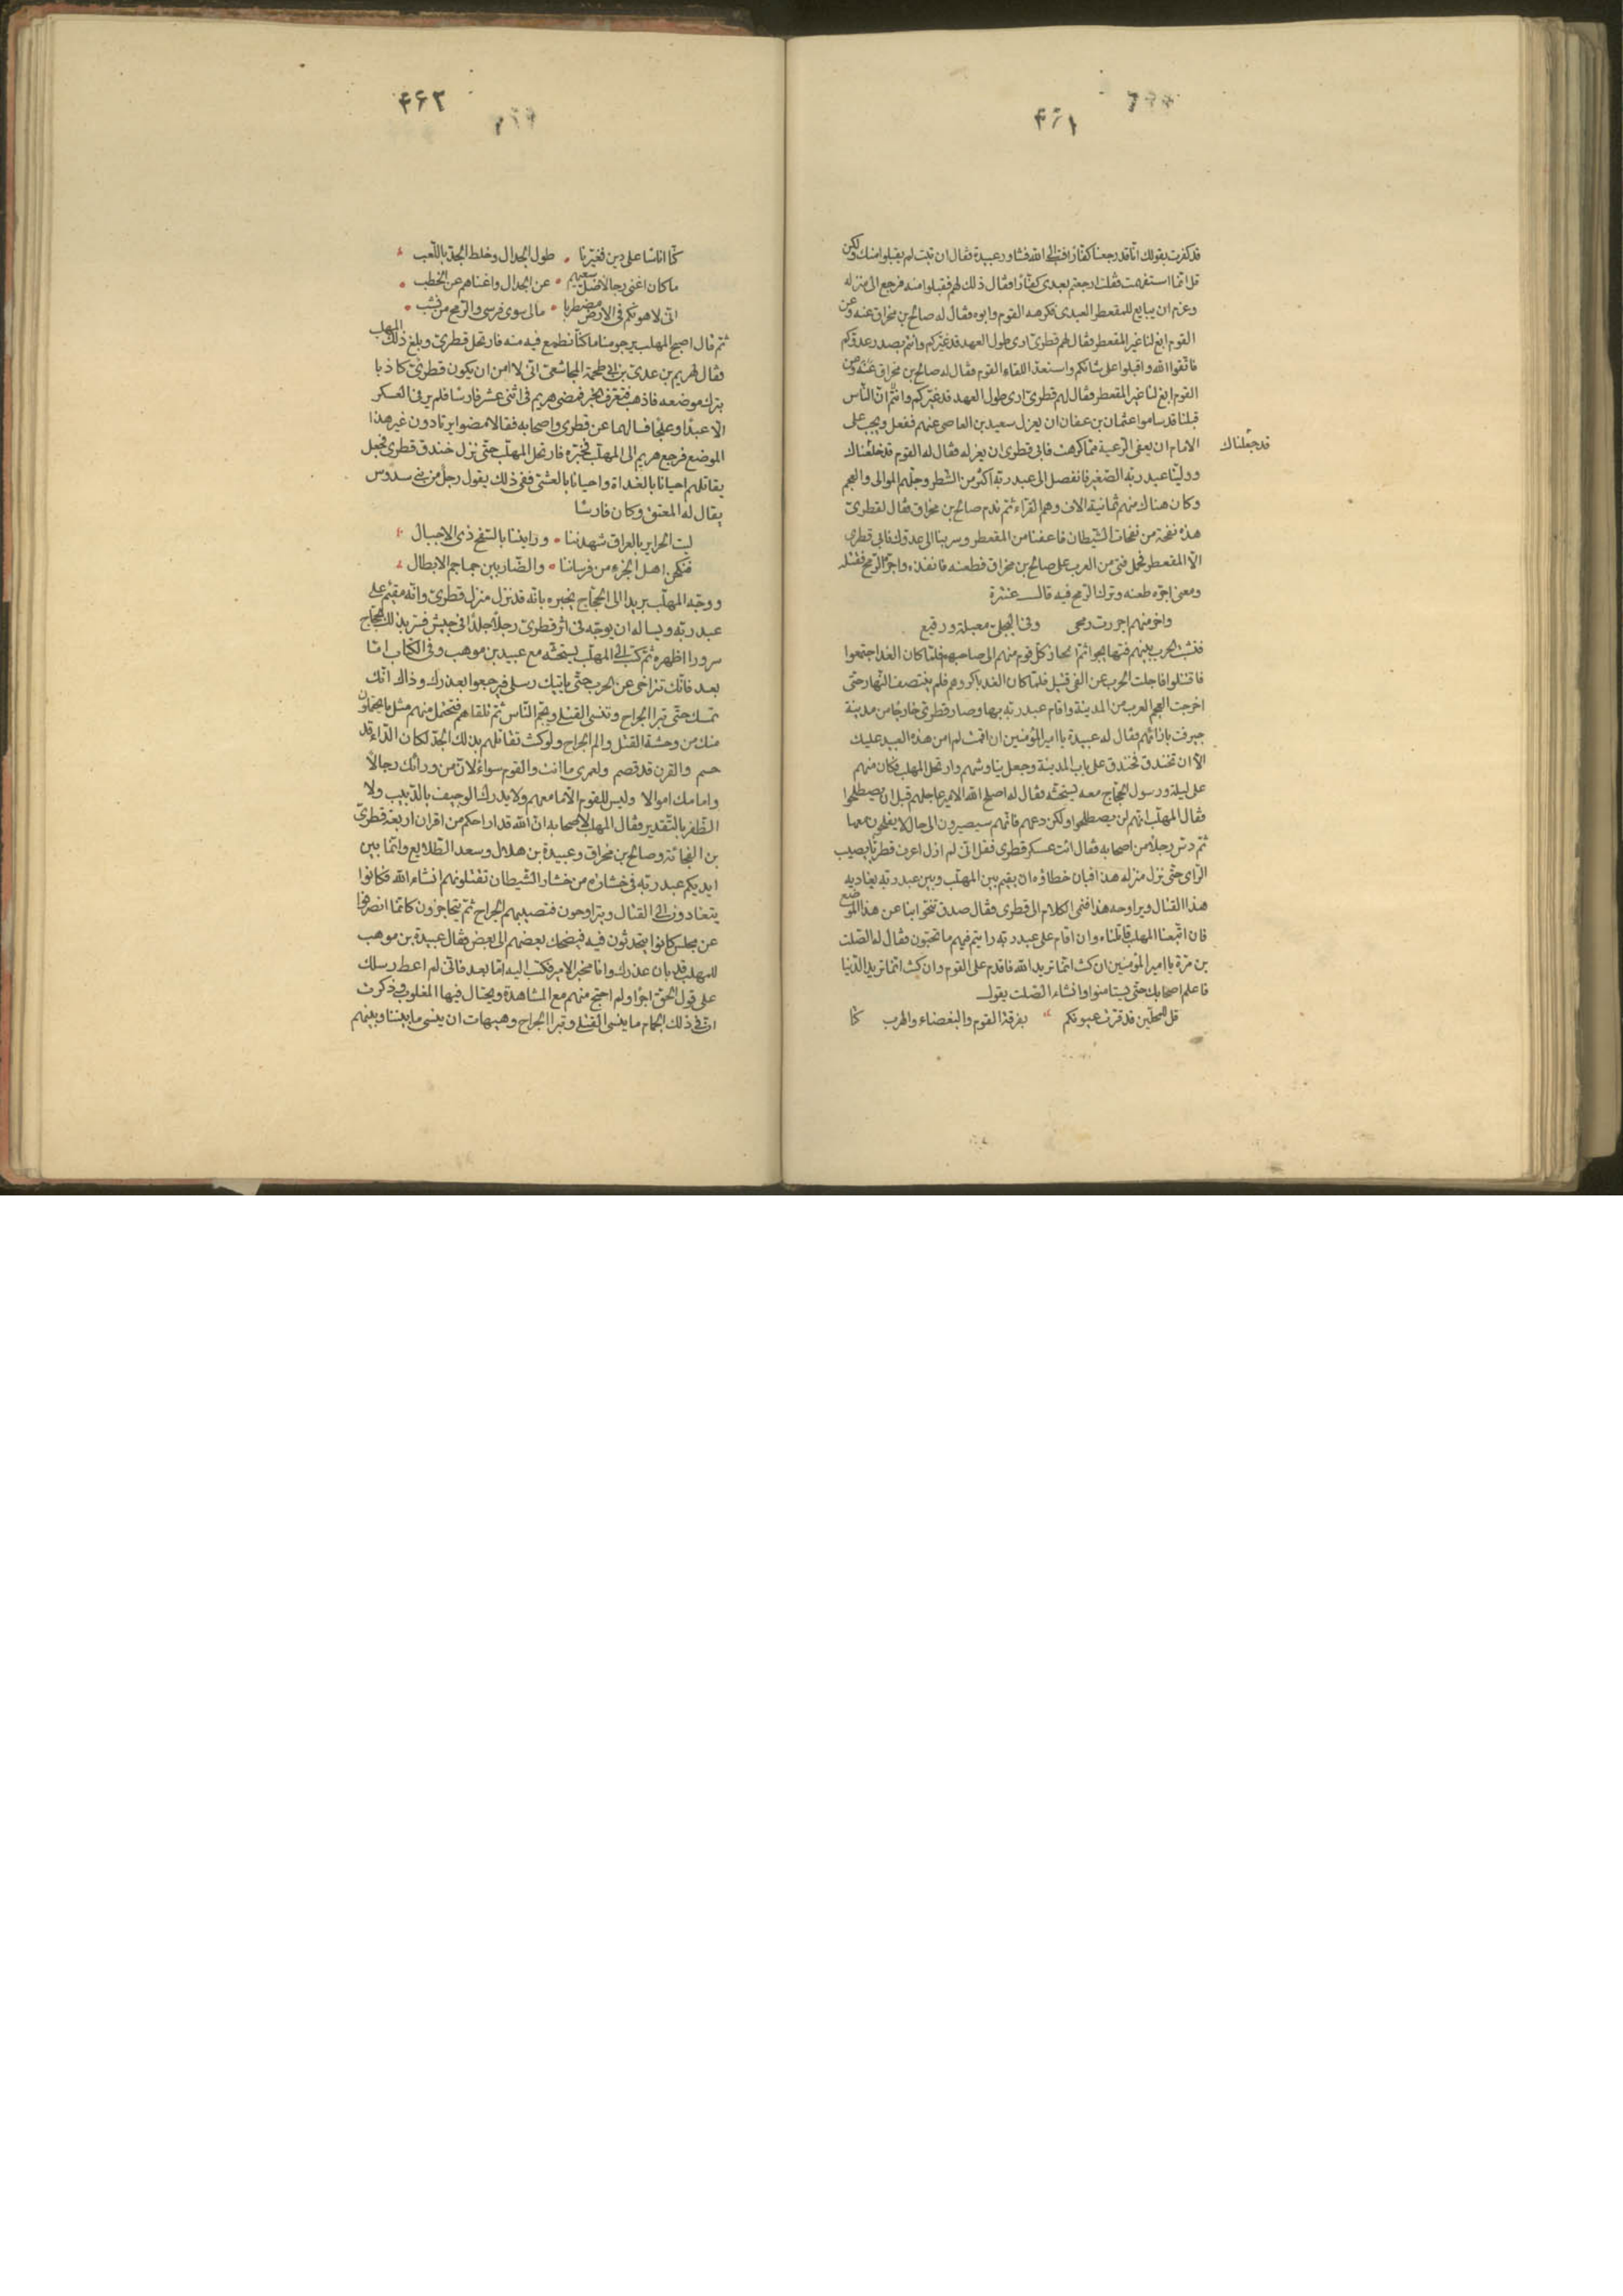 ۴۶۱
قد كفرت بقولك انا قد رجعنا كفارا فتب الى الله فشاور عبيدة فقال ان تبت لم يقبلوا منك ولكن
قل انما استفهمت فقلت ارجعتم بعدى كفارا فقال ذلك لهم فقبلوا منه فرجع الى منزله
وعزم ان يبايع للمقعطر العبدى فكرهه القوم وابوه فقال له صالح بن مخراق عنه وعن
القوم ابغ لنا غير المقعطر فقال لهم قطرى ارى طول العهد قد غيركم وانتم بصدد عدوكم
فاتقوا الله واقبلوا على شانكم واستعدوا للقاء القوم فقال له صالح بن مخراق عنه وعن
القوم ابغ لنا غير المقعطر فقال لهم قطرى ارى طول العهد قد غيركم وانتم ان الناس
قبلنا قد ساموا عثمان بن عفان ان يعزل سعيد بن العاصى عنهم ففعل ويجب على
الامام ان يعفى الرعية مما كرهت فابى قطرى ان يعزله فقال له القوم قد خلعناك
قد جعلناك
وولينا عبد ربه الصغير فانفصل الى عبد ربه اكثر من الشطر وجلهم الموالى والعجم
وكان هناك منهم ثمانية الاف وهم القراء ثم ندم صالح بن مخراق فقال لقطرى
هذه نفخة من نفخات الشيطان فاعفنا من المقعطر وسر بنا الى عدوك فابى قطرى
الا المقعطر فحمل فتى من العرب على صالح بن مخراق فطعنه فانفذه واجره الرمح فقتله
ومعنى اجره طعنه وترك الرمح فيه قال عنترة
واخر منهم اجررت رمحى وفى البجلى معبلة وقيع
فنشب الحرب بينهم فتهايجوا ثم انحاز كل قوم منهم الى صاحبهم فلما كان الغد اجتمعوا
فاقتتلوا فاجلت الحرب عن الفى قتيل فلما كان الغد باكروهم فلم ينتصف النهار حتى
اخرجت العجم العرب من المدينة واقام عبد ربه بها وصار قطرى خارجا من مدينة
جيرفت بازائهم فقال له عبيدة يا امير المؤمنين ان اقمت لم امن هذه العبيد عليك
الا ان تخندق فخندق على باب المدينة وجعل يناوشهم وارتحل المهلب فكان منهم
على ليلة ورسول الحجاج معه يستحثه فقال له اصلح الله الامير عاجلهم قبل ان يصطلحوا
فقال المهلب انهم لن يصطلحوا ولكن دعهم فانهم سيصيرون الى حال لا يفلحون معها
ثم دس رجلا من اصحابه فقال ائت عسكر قطرى فقل انى لم ازل اعرف قطريا يصيب
الراى حتى نزل منزله هذا فبان خطاؤه ان يقيم بين المهلب وبين عبد ربه يغاديه
هذا القتال ويراوحه هذا فنمى الكلام الى قطرى فقال صدق تنحوا بنا عن هذا الموضع
فان اتبعنا المهلب قاتلناه وان اقام على عبد ربه رايتم فيهم ما تحبون فقال له الصلت
بن مرة يا امير المؤمنين ان كنت انما تريد الله فاقدم على القوم وان كنت انما تريد الدنيا
فاعلم اصحابك حتى يستامنوا وانشاء الصلت يقول
قل للمحلين قد قرت عيونكم بفرقة القوم والبغضاء والهرب كنا
۴۶۲
كنا اناسا على دين فغيرنا طول الجدال وخلط الجد باللعب
ما كان اغنى رجالا ضل سعيهم عن الجدال واغناهم عن الخطب
انى لاهونكم فى الارض مضطربا مالى سوى فرسى والرمح من نشب
ثم قال اصبح المهلب يرجو منا ما كنا نطمع فيه منه فارتحل قطرى وبلغ ذلك المهلب
فقال لهريم بن عدى بن ابى طحمة المجاشعى انى لا امن ان يكون قطرى كاذبا
بترك موضعه فاذهب فتعرف الخبر فمضى هريم فى اثنى عشر فارسا فلم ير فى العسكر
الا عبدا وعلجا فسالهما عن قطرى واصحابه فقالا مضوا يرتادون غير هذا
الموضع فرجع هريم الى المهلب فخبره فارتحل المهلب حتى نزل خندق قطرى فجعل
يقاتلهم احيانا بالغداة واحيانا بالعشى ففى ذلك يقول رجل من بنى سدوس
يقال له المعنق وكان فارسا
ليت الحراير بالعراق شهدننا وراينا بالسفح ذى الاجبال
فنكحن اهل الجزء من فرساننا والضاربين جماجم الابطال
ووجه المهلب يزيد الى الحجاج يخبره بانه قد نزل منزل قطرى وانه مقيم على
عبد ربه ويساله ان يوجه فى اثر قطرى رجلا جلدا فى جيش فسر بذلك الحجاج
سرورا اظهره ثم كتب الى المهلب يستحثه مع عبيد بن موهب وفى الكتاب اما
بعد فانك تتراخى عن الحرب حتى ياتيك رسلى فيرجعوا بعذرك وذاك انك
تمسك حتى تبرا الجراح وتنسى القتلى ويجم الناس ثم تلقاهم فتحتمل منهم مثل ما يحتملون
منك من وحشة القتل والم الجراح ولو كنت تقاتلهم بذلك الجد لكان الداء قد
حسم والقرن قد قصم ولعمرى ما انت والقوم سواء لان من ورائك رجالا
وامامك اموالا وليس للقوم الا ما معهم ولا يدرك الوجيف بالدبيب ولا
الظفر بالتعذير فقال المهلب لاصحابه ان الله قد اراحكم من اقران اربعة قطرى
بن الفجائة وصالح بن مخراق وعبيدة بن هلال وسعد الطلايع وانما بين
ايديكم عبد ربه فى خشارة من خشار الشيطان تقتلونهم انشاء الله فكانوا
يتغادون الى القتال ويتراوحون فتصيبهم الجراح ثم يتحاجزون كانما انصرفوا
عن مجلس كانوا يتحدثون فيه فيضحك بعضهم الى بعض فقال عبيدة بن موهب
للمهلب قد بان عذرك وانا مخبر الامير فكتب اليه اما بعد فانى لم اعط رسلك
على قول الحق اجرا ولم احتج منهم مع المشاهدة ويحتال فيها المغلوب وذكرت
ان فى ذلك الجمام ما ينسى القتلى وتبرا الجراح وهيهات ان ينسى ما بيننا وبينهم